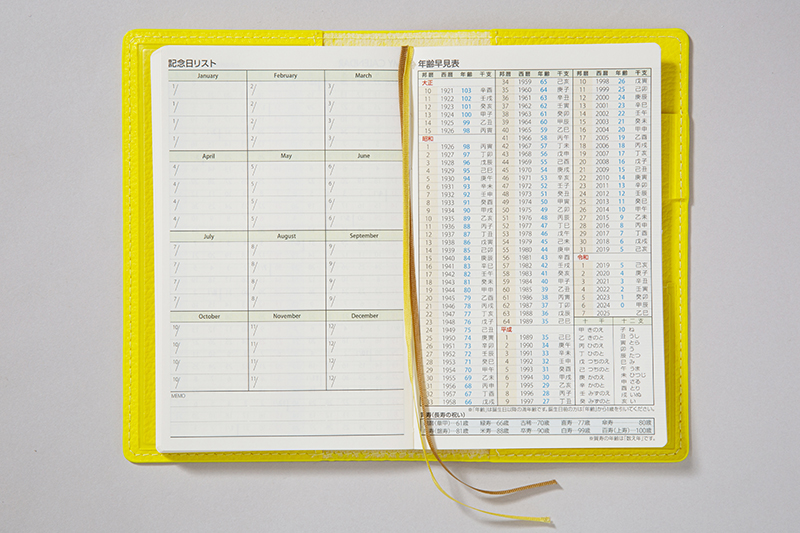 記念日リスト
January February March
1/ 2/ 3/
1/ 2/ 3/
1/ 2/ 3/
1/ 2/ 3/
April May June
4/ 5/ 6/
4/ 5/ 6/
4/ 5/ 6/
4/ 5/ 6/
July August September
7/ 8/ 9/
7/ 8/ 9/
7/ 8/ 9/
7/ 8/ 9/
October November December
10/ 11/ 12/
10/ 11/ 12/
10/ 11/ 12/
10/ 11/ 12/
MEMO
年齢早見表
邦暦 西暦 年齢 干支
大正
10 1921 103 辛酉
11 1922 102 壬戌
12 1923 101 癸亥
13 1924 100 甲子
14 1925 99 乙丑
15 1926 98 丙寅
昭和
1 1926 98 丙寅
2 1927 97 丁卯
3 1928 96 戊辰
4 1929 95 己巳
5 1930 94 庚午
6 1931 93 辛未
7 1932 92 壬申
8 1933 91 癸酉
9 1934 90 甲戌
10 1935 89 乙亥
11 1936 88 丙子
12 1937 87 丁丑
13 1938 86 戊寅
14 1939 85 己卯
15 1940 84 庚辰
16 1941 83 辛巳
17 1942 82 壬午
18 1943 81 癸未
19 1944 80 甲申
20 1945 79 乙酉
21 1946 78 丙戌
22 1947 77 丁亥
23 1948 76 戊子
24 1949 75 己丑
25 1950 74 庚寅
26 1951 73 辛卯
27 1952 72 壬辰
28 1953 71 癸巳
29 1954 70 甲午
30 1955 69 乙未
31 1956 68 丙申
32 1957 67 丁酉
33 1958 66 戊戌
34 1959 65 己亥
35 1960 64 庚子
36 1961 63 辛丑
37 1962 62 壬寅
38 1963 61 癸卯
39 1964 60 甲辰
40 1965 59 乙巳
41 1966 58 丙午
42 1967 57 丁未
43 1968 56 戊申
44 1969 55 己酉
45 1970 54 庚戌
46 1971 53 辛亥
47 1972 52 壬子
48 1973 51 癸丑
49 1974 50 甲寅
50 1975 49 乙卯
51 1976 48 丙辰
52 1977 47 丁巳
53 1978 46 戊午
54 1979 45 己未
55 1980 44 庚申
56 1981 43 辛酉
57 1982 42 壬戌
58 1983 41 癸亥
59 1984 40 甲子
60 1985 39 乙丑
61 1986 38 丙寅
62 1987 37 丁卯
63 1988 36 戊辰
64 1989 35 己巳
平成
1 1989 35 己巳
2 1990 34 庚午
3 1991 33 辛未
4 1992 32 壬申
5 1993 31 癸酉
6 1994 30 甲戌
7 1995 29 乙亥
8 1996 28 丙子
9 1997 27 丁丑
邦暦 西暦 年齢 干支
10 1998 26 戊寅
11 1999 25 己卯
12 2000 24 庚辰
13 2001 23 辛巳
14 2002 22 壬午
15 2003 21 癸未
16 2004 20 甲申
17 2005 19 乙酉
18 2006 18 丙戌
19 2007 17 丁亥
20 2008 16 戊子
21 2009 15 己丑
22 2010 14 庚寅
23 2011 13 辛卯
24 2012 12 壬辰
25 2013 11 癸巳
26 2014 10 甲午
27 2015 9 乙未
28 2016 8 丙申
29 2017 7 丁酉
30 2018 6 戊戌
31 2019 5 己亥
令和
1 2019 5 己亥
2 2020 4 庚子
3 2021 3 辛丑
4 2022 2 壬寅
5 2023 1 癸卯
6 2024 0 甲辰
7 2025 乙巳
十干
甲 きのえ
乙 きのと
丙 ひのえ
丁 ひのと
戊 つちのえ
己 つちのと
庚 かのえ
辛 かのと
壬 みずのえ
癸 みずのと
十二支
子 ね
丑 うし
寅 とら
卯 う
辰 たつ
巳 み
午 うま
未 ひつじ
申 さる
酉 とり
戌 いぬ
亥 い
※「年齢」は誕生日以降の満年齢です。誕生日前の方は「年齢」から1歳を引いてください。
寿(長寿の祝い)
(華甲)…61歳 緑寿…66歳 古稀…70歳 喜寿 77歳 傘寿……80歳
…81歳 米寿…88歳 卒寿…90歳 白寿…99歳 百寿(上寿)…100歳
※賀寿の年齢は「数え年」です。